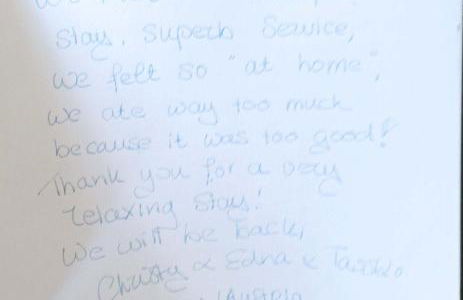 stay. Superb Service,
we felt so "at home",
we ate way too much
because it was too good!
Thank you for a very
relaxing stay!
We will be back,
Christy & Edna &